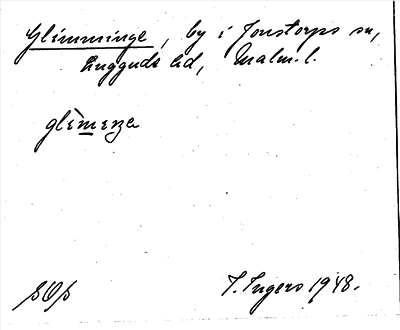 Glimminge, by i Jonstorps sn,
Luggude hd, Malm. l.
glìmeŋe
SOS
I. Ingers 1948.